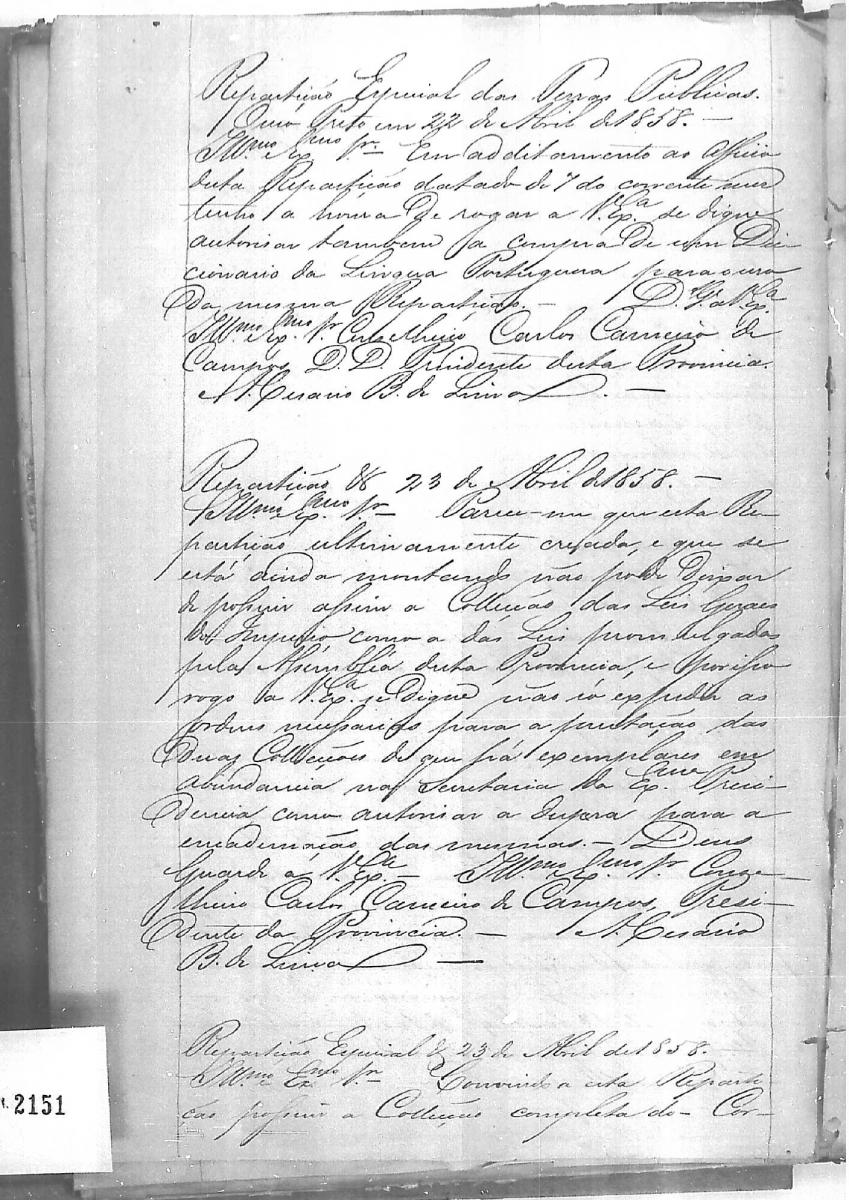 Repartição Especial das Terras Publicas.
Ouro Preto em 22 de Abril de 1858. —
Illmo. e Exmo. Sr. Em additamento ao officio
desta Repartição datado de 7 do corrente mez
tenho a honra de rogar a V. Exa. se digne
autorisar tambem a compra de um Dic-
cionario da Lingua Portugueza para o uso
da mesma Repartição. — D. G. a V. Exa.
Illmo. e Exmo. Sr. Conselheiro Carlos Carneiro de
Campos, D. D. Presidente desta Provincia.
A. Cesario B. de Lima. —
Repartição & 23 de Abril de 1858. —
Illmo. e Exmo. Sr. Parece-me que esta Re-
partição ultimamente creada, e que se
está ainda montando não pode deixar
de possuir assim a Collecção das Leis Geraes
do Imperio como a das Leis promulgadas
pela Assembléa desta Provincia, e por isso
rogo a V. Exa. se digne não só expedir as
ordens necessarias para a prestação das
duas Collecções de que há exemplares em
abundancia na Secretaria da Exma. Presi-
dencia como autorisar a despeza para a
encadernação das mesmas. — Deus
Guarde á V. Exa. — Illmo. e Exmo. Sr. Conse-
lheiro Carlos Carneiro de Campos, Presi-
dente da Provincia. — A. Cesario
B. de Lima —
Repartição Especial & 23 de Abril de 1858.
Illmo. e Exmo. Sr. Convindo a esta Reparti-
ção possuir a Collecção completa do Cor-
2151